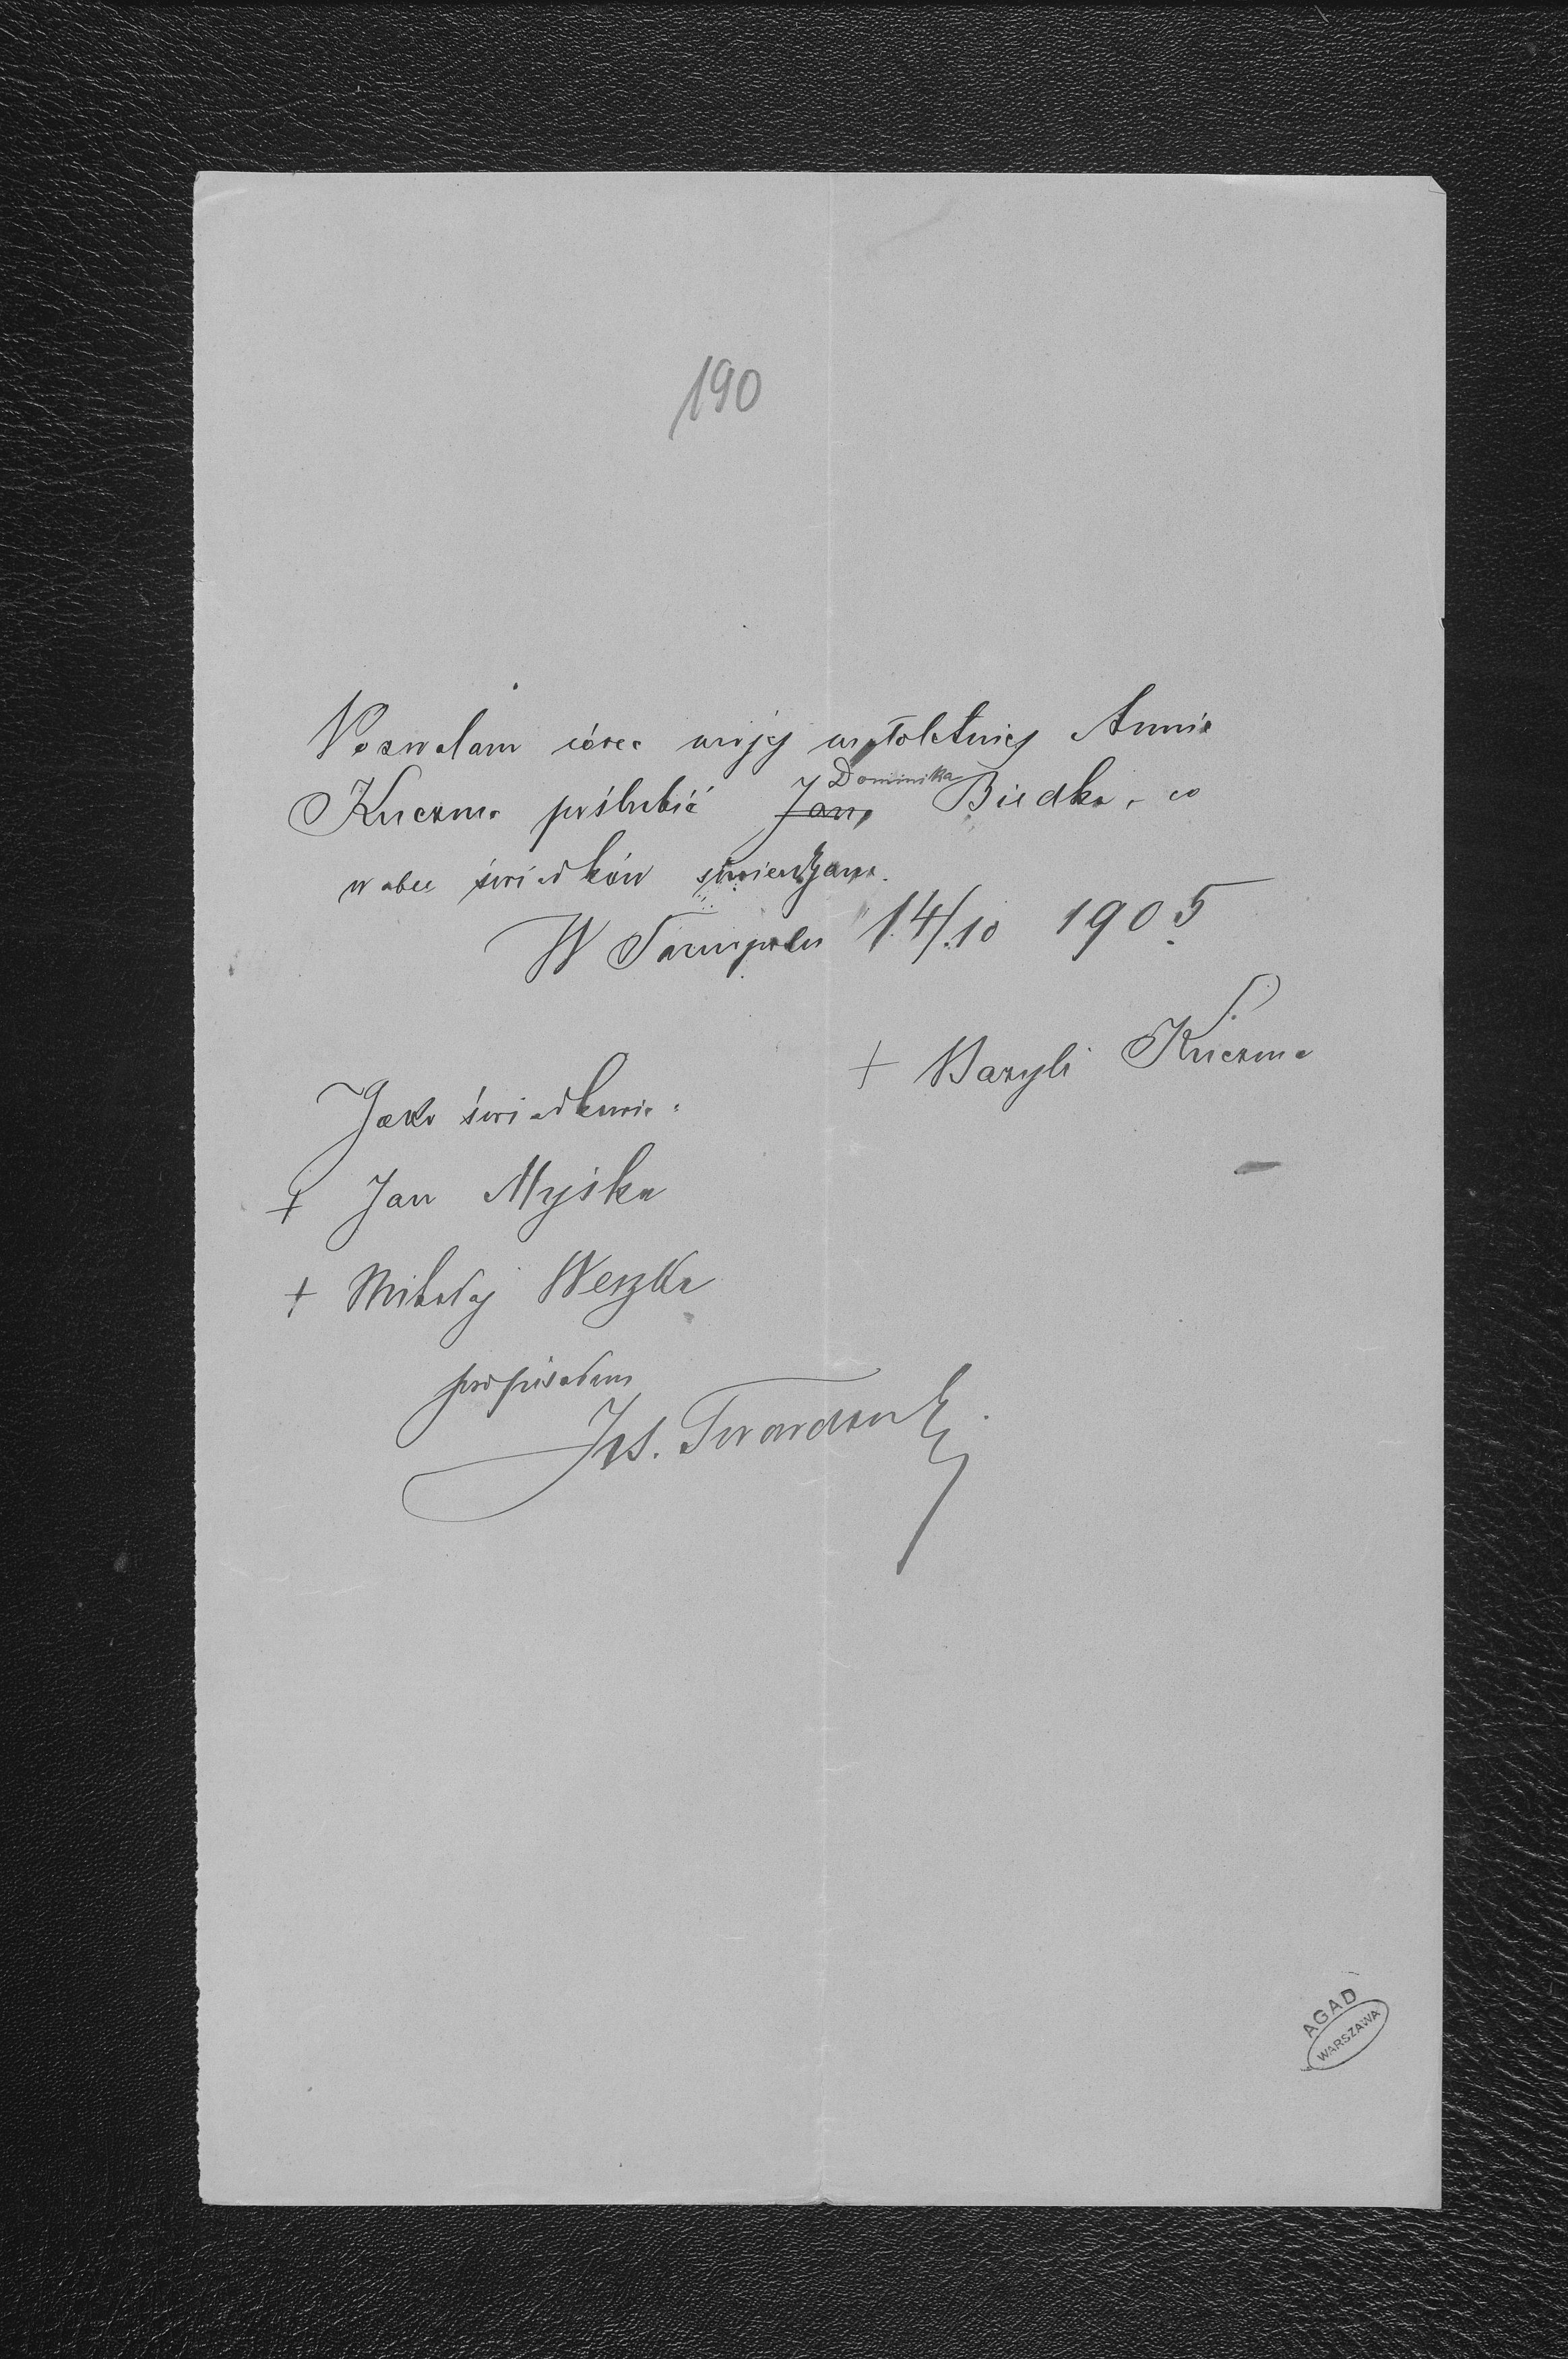 190
Pozwalam córce mojej małoletniej Annie
Kuczma poślubić Jana Dominika Biedka, co
wobec świadków stwierdzam.
W Tarnopolu 14/10 1905
+ Bazyli Kuczma
Jako świadkowie:
+ Jan Myśka
+ Mikołaj Weszka
podpisałem
Jos. Twardzik
AGAD
WARSZAWA